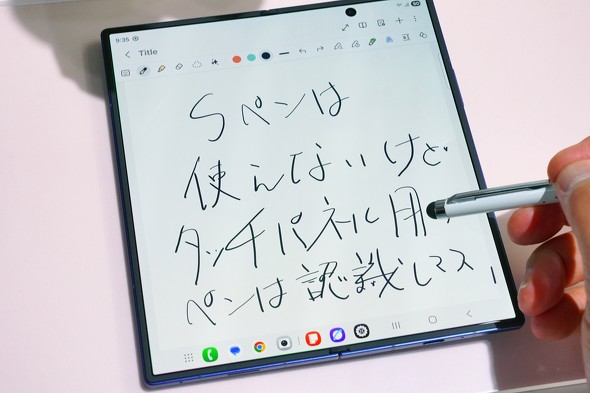 9:35
Title
Sペンは
使えないけど
タッチパネル用
ペンは認識しマス